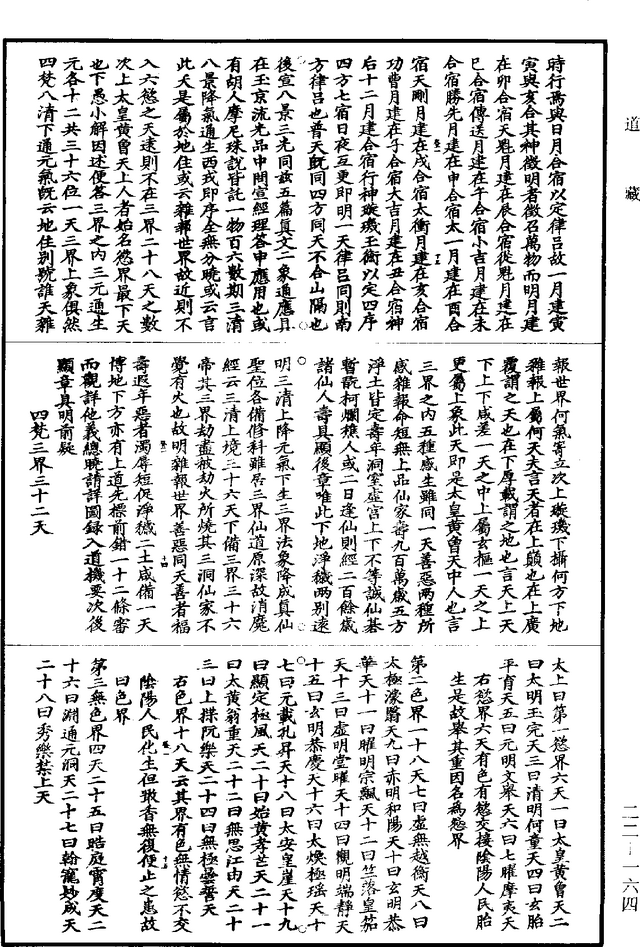 道藏
時行焉與日月合宿以定律呂故一月建寅
寅與亥合其神徵明者徵召萬物而明月建
在卯合宿天魁月建在辰合宿從魁月建在
巳合宿傳送月建在午合宿小吉月建在未
合宿勝先月建在申合宿太一月建在酉合
宿天剛月建在戌合宿太衝月建在亥合宿
功曹月建在子合宿大吉月建在丑合宿神
后十二月建合宿行神璇璣玉衡以定四序
四方七宿日夜互更即明一天律呂同則南
方律呂也普天既同四方同天不合山隔也
後宣八景三光同茲五篇真文二象通應且
在玉京流光品中問宣經理答申應用也或
有胡人摩尼珠說皆託一物百六數期三清
八景降氣通生西戎即序全無分曉或云言
此天是屬於地住或云雜報世界故近則不
入六慾之天遠則不在三界二十八天之數
次上太皇黃曾天上人者始名慾界最下天
也下愚小解因述便答三界之內三元通生
元各十二共三十六位一天三界上象俱然
四梵八清下通元氣既云地住別號誰天雜
報世界何氣寄立次上璇璣下攝何方下地
雜報上屬何天夫言天者在上顛也在上廣
覆謂之天也在下厚載謂之地也言天上天
下上下咸差一天之中上屬玄樞一天之上
更屬上象此天即是太皇黃曾天中人也言
三界之內五種感生雖同一天善惡兩種所
感雜報命短無上品仙家壽九百萬歲五方
淨土皆定壽年洞室虛宮上下不等誠仙碁
暫翫柯爛樵人或二日逢仙則經二百餘歲
諸仙人壽具顯後章唯此下地淨穢兩别遠
明三清上降元氣下生三界法象降成真仙
聖位各備修科雖居三界仙道原深故消魔
經云三清上境三十六天下備三界三十六
帝其三界劫盡被劫火所燒其三洞仙家不
覺有火也故明雜報世界善惡同天善者福
壽遐年惡者濁辱短促淨穢二土咸備一天
博地下方亦有上道先標前錯一十二條審
而觀詳他義總曉請詳圖錄入道機要次後
顯章具明前疑
四梵三界三十二天
太上曰第一慾界六天一曰太皇黃曾天二
曰太明玉完天三曰清明何童天四曰玄胎
平育天五曰元明文舉天六曰七曜摩夷天
右慾界六天有色有慾交接陰陽人民胎
生是故舉其重因名為慾界
第二色界一十八天七曰虛無越衡天八曰
太極濛翳天九曰赤明和陽天十曰玄明恭
華天十一曰曜明宗飄天十二曰竺落皇笳
天十三曰虛明堂曜天十四曰觀明端靜天
十五曰玄明恭慶天十六曰太煥極瑶天十
七曰元載孔昇天十八曰太安皇崖天十九
曰顯定極風天二十曰始黃孝芒天二十一
曰太黃翁重天二十二曰無思江由天二十
三曰上揲阮樂天二十四曰無極曇誓天
右色界十八天云其界有色無情慾不交
陰陽人民化生但噉香無復便止之患故
曰色界
第三無色界四天二十五曰晧庭霄度天二
十六曰淵通元洞天二十七曰翰寵妙成天
二十八曰秀樂禁上天
二二—一六四